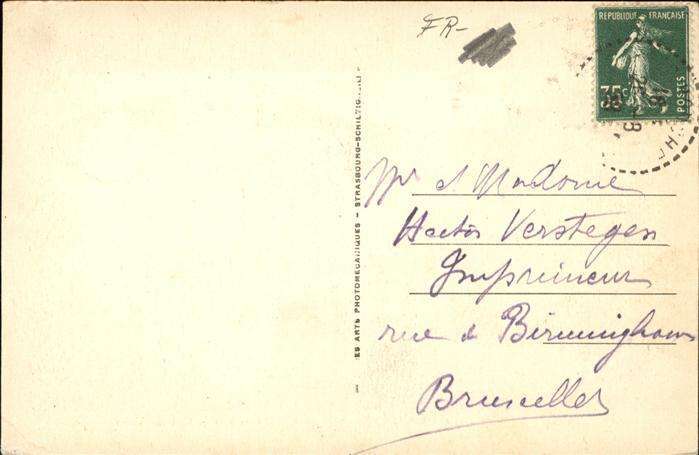 FR-
REPUBLIQUE FRANÇAISE
POSTES
35c
ES ARTS PHOTOMECANIQUES - STRASBOURG-SCHILTIGHEI
Mr et Madame
Hector Verstegen
Imprimeur
rue de Birmingham
Bruxelles